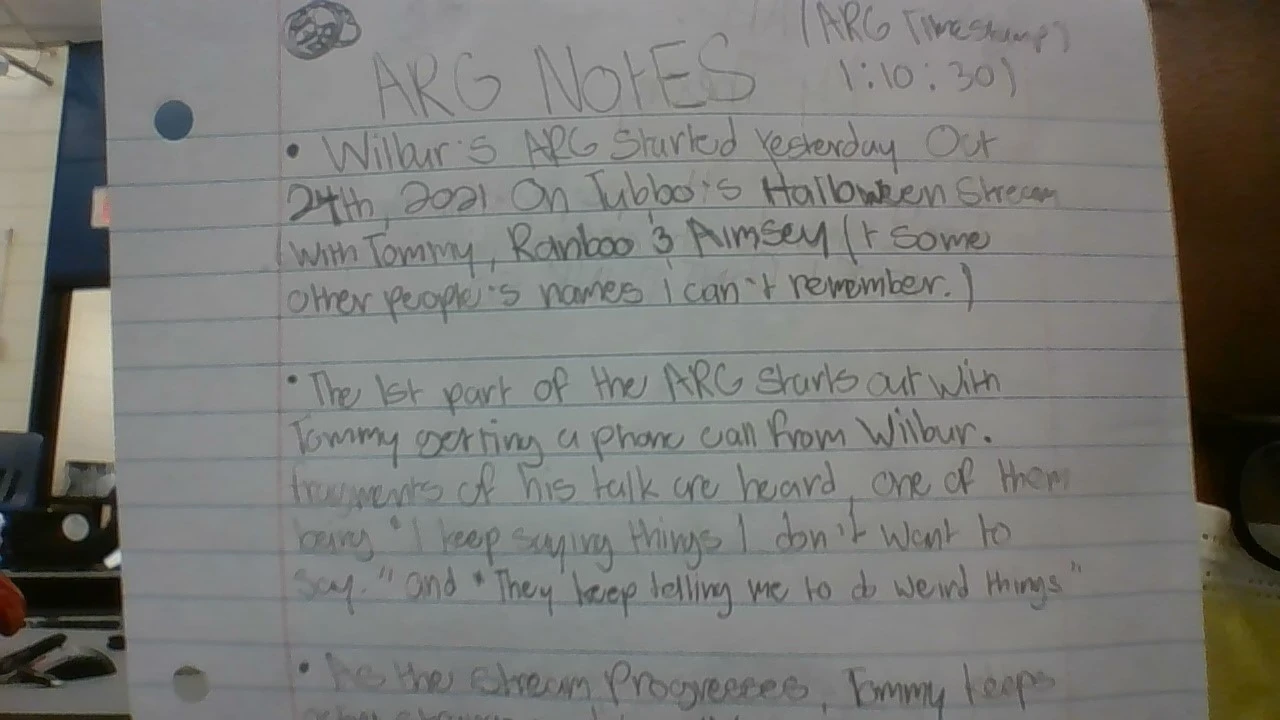 (ARG Timestamp)
ARG NOtES 1:10:30)
• Wilbur's ARG Started Yesterday Oct
24th, 2021 On Tubbo's Halloween Stream
With Tommy, Ranboo & Aimsey (+ some
other people's names i can't remember.)
• The 1st part of the ARG starts out with
Tommy getting a phone call from Wilbur.
fragments of his talk are heard, one of them
being "I keep saying things I don't want to
say." and "They keep telling me to do weird things"
• As the stream Progresses, Tommy keeps